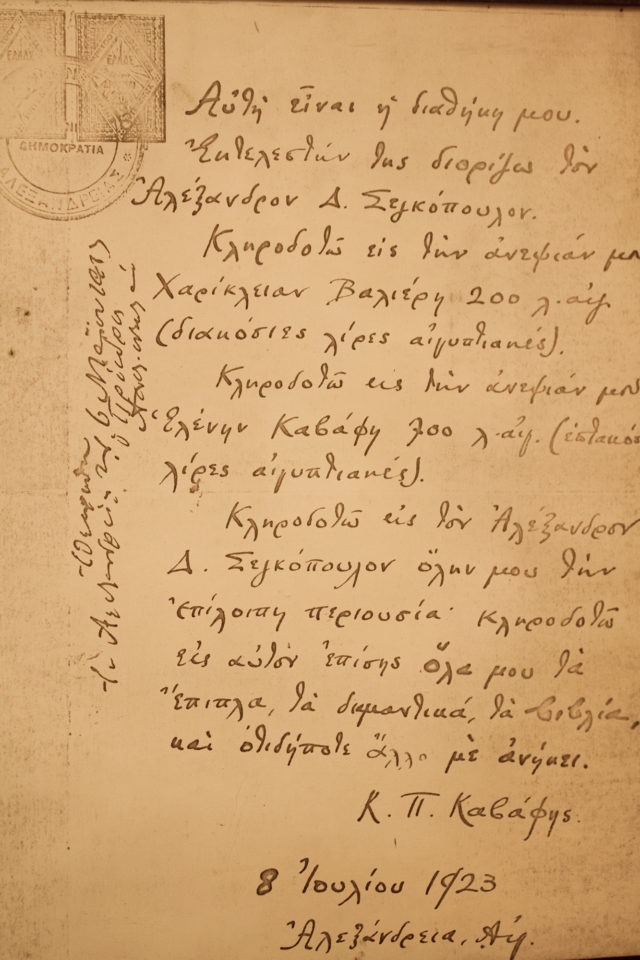 ΕΛΛΑΣ
ΕΛΛΑΣ
ΔΗΜΟΚΡΑΤΙΑ
ΑΛΕΞΑΝΔΡΕΙΑΣ
Αὐτὴ εἶναι ἡ διαθήκη μου.
Ἐκτελεστὴν της διορίζω τὸν
Ἀλέξανδρον Δ. Σεγκόπουλον.
Κληροδοτῶ εἰς τὴν ἀνεψιάν μου
Χαρίκλειαν Βαλιέρη 200 λ.αἰγ.
(διακόσιες λίρες αἰγυπτιακές).
Κληροδοτῶ εις τὴν ἀνεψιάν μου
Ἑλένην Καβάφη 700 λ.αἰγ. (ἑπτακόσ
λίρες αἰγυπτιακές).
Κληροδοτῶ εἰς τὸν Ἀλέξανδρον
Δ. Σεγκόπουλον ὅλην μου τὴν
ἐπίλοιπη περιουσία· κληροδοτῶ
εἰς αὐτὸν ἐπίσης ὅλα μου τὰ
ἔπιπλα, τὰ κοσμηματικά, τὰ βιβλία,
καὶ ὁτιδήποτε ἄλλο μὲ ἀνήκει.
Κ. Π. Καβάφης.
8 Ἰουλίου 1923
Ἀλεξάνδρεια, Αἰγ.
Ἐθεωρήθη
Ἐν Ἀλεξανδρείᾳ τῇ
ὁ Πρόεδρος